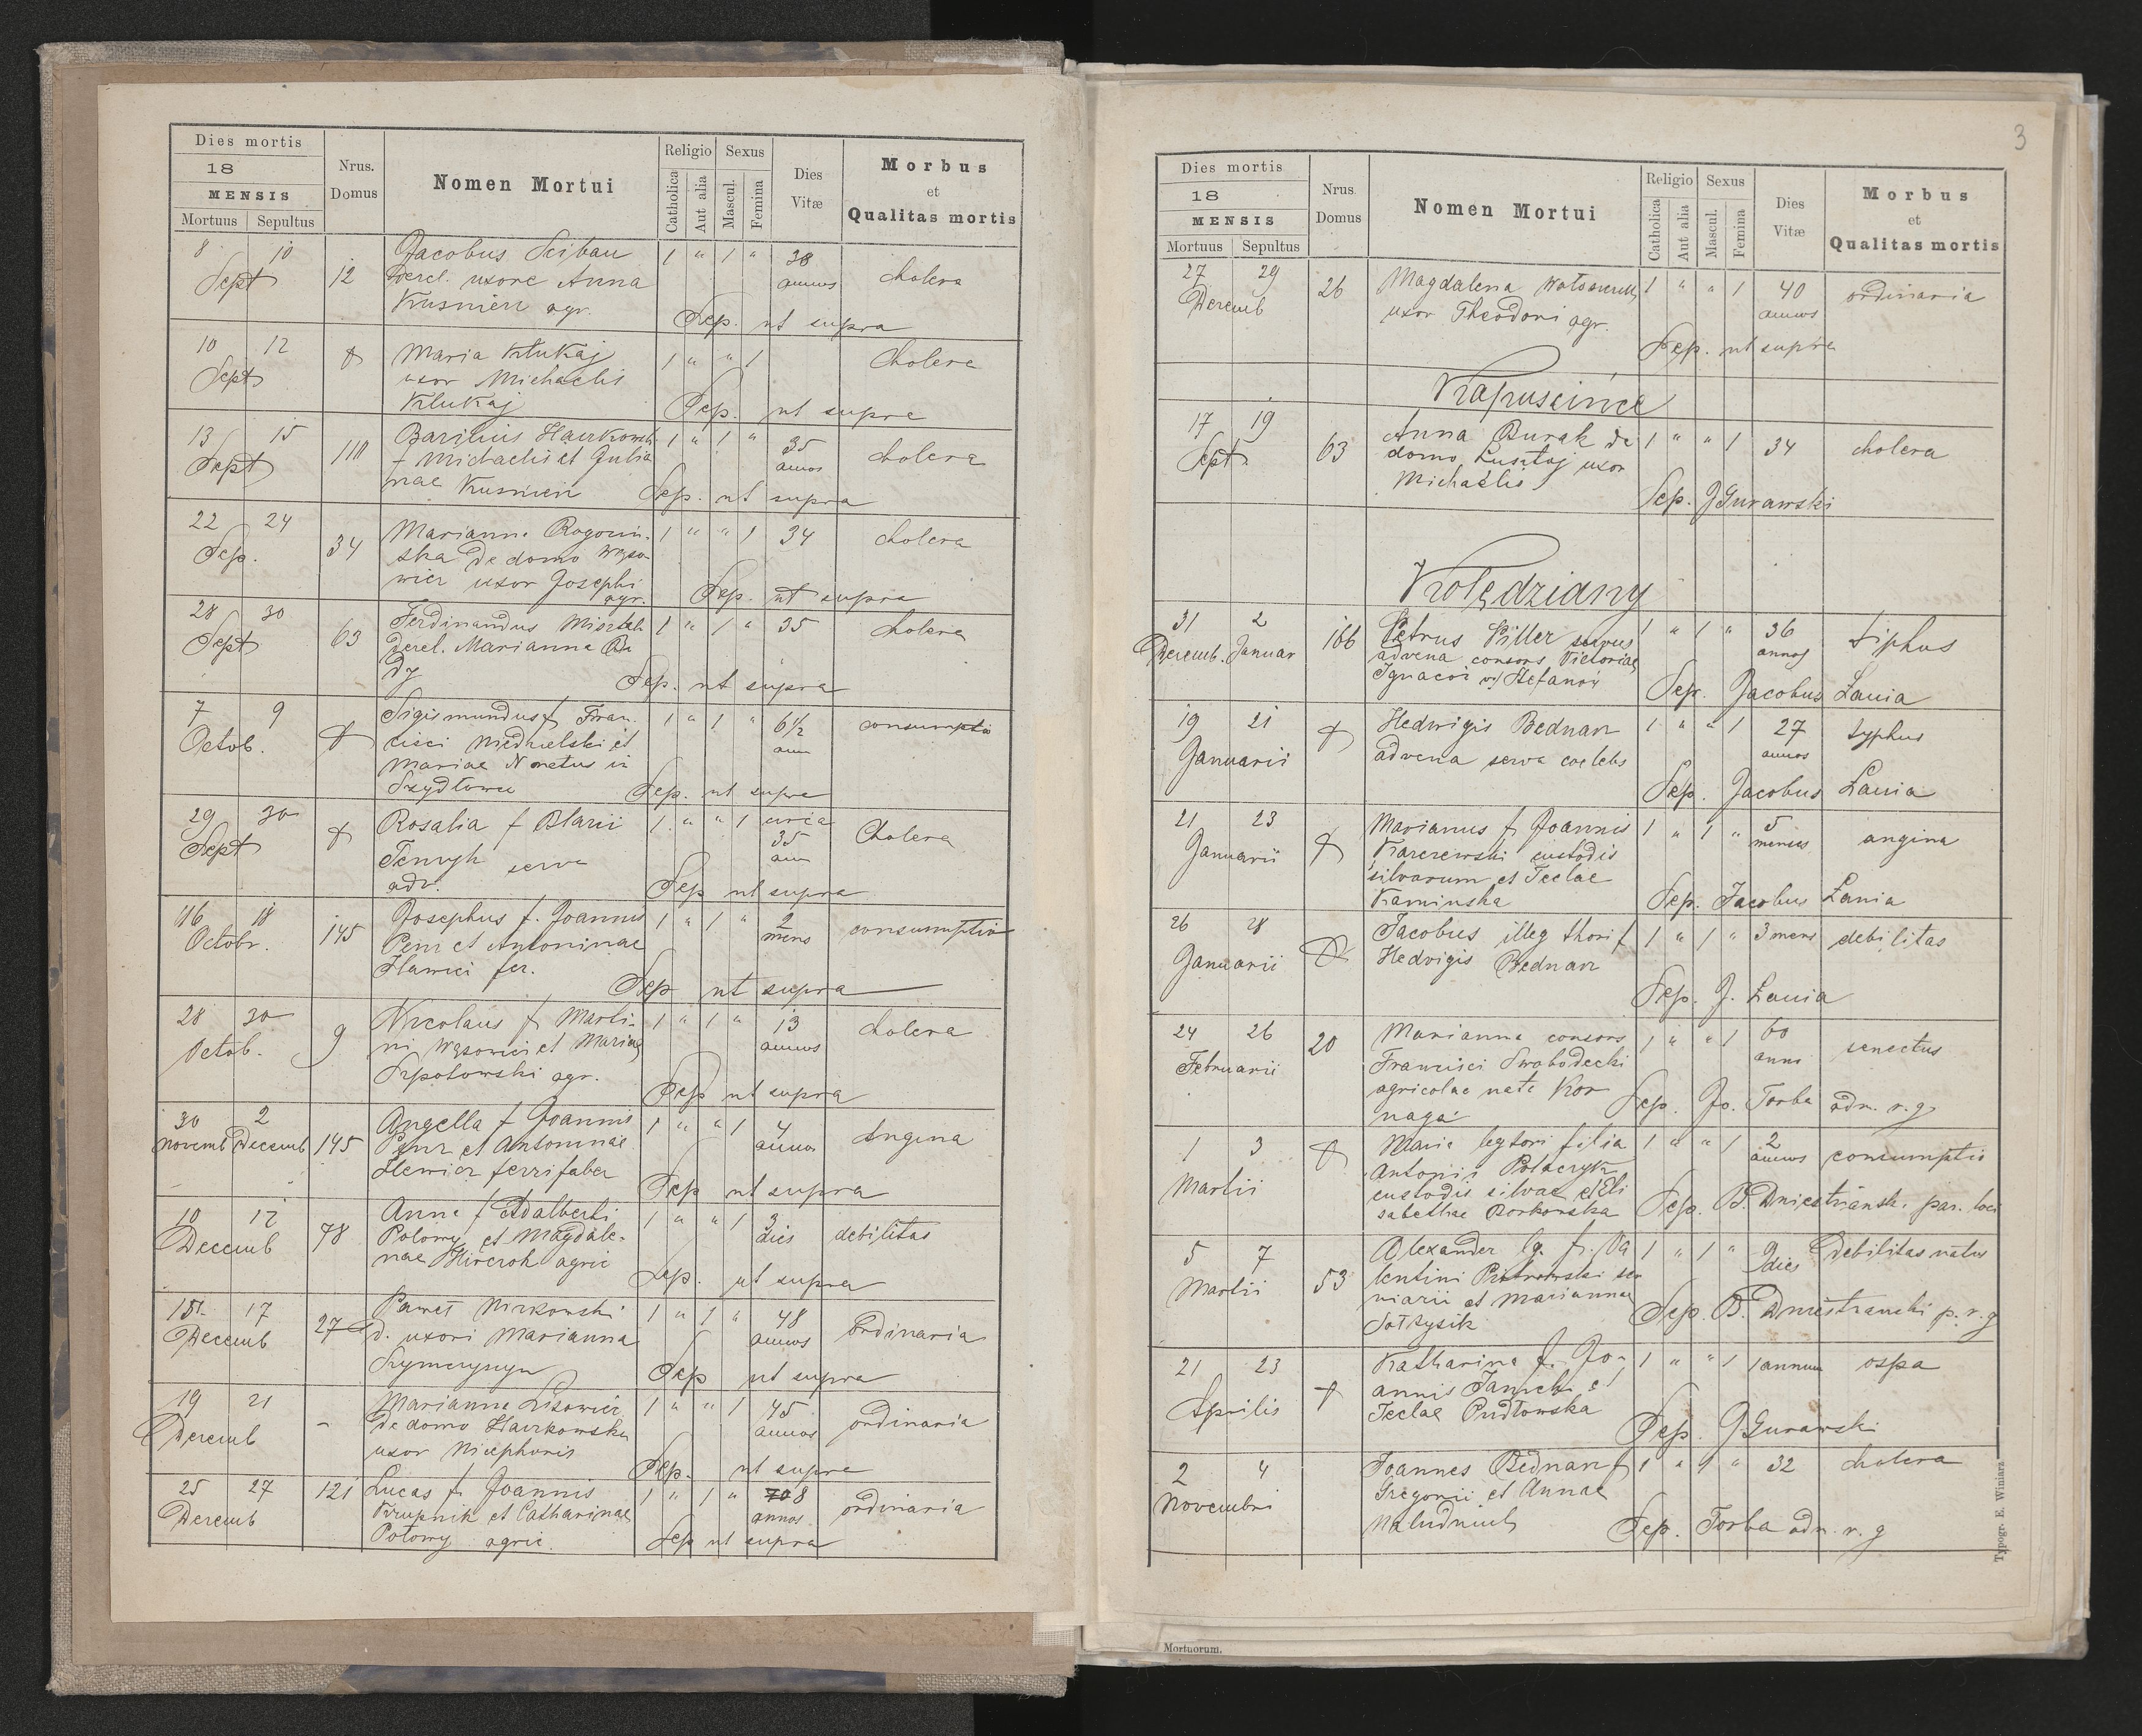 Dies mortis
18
MENSIS
Mortuus Sepultus
Nrus.
Domus
Nomen Mortui
Religio
Catholica
Aut alia
Sexus
Mascul.
Femina
Dies
Vitæ
Morbus
et
Qualitas mortis
8 10
Sept
12
Jacobus Scibau
derel. uxore Anna
Kusnierz agr.
1 " 1 "
38
annos
cholera
Sep. ut supra
10 12
Sept
Maria Klukaj
uxor Michaelis
Klukaj
1 " " 1
Cholera
Sep. ut supra
13 15
Sept
110
Basilius
f Michaelis et Julia
nae Kusnierz
1 " 1 "
35
annos
cholera
Sep. ut supra
22 24
Sep.
34
Marianna Rogozin-
ska de domo Wąso-
wicz uxor Josephi
agr.
1 " " 1
34
cholera
Sep. ut supra
28 30
Sept
63
Ferdinandus
derel. Marianna
1 " 1 "
35
cholera
Sep. ut supra
7 9
Octob.
Sigismundus f Fran-
cisci Niedzielski et
Mariae N metus in
Szydłowce
1 " 1 "
6 1/2
ann
consumptio
Sep. ut supra
29 30
Sept
Rosalia f Blarii
serva
adv.
1 " " 1
circa
35
ann
Cholera
Sep ut supra
16 18
Octobr.
145
Josephus f. Joannis
Penr et Antoninae
Hawicz fer.
1 " 1 "
2
mens
consumptio
Sep ut supra
28 30
Octob.
9
Nicolaus f Marti-
ni Wąsowicz et Mariae
Szpotowski agr.
1 " 1 "
13
annos
cholera
Sep ut supra
30 2
Novemb Decemb
145
Angella f Joannis
Penr et Antoninae
Hewicz ferrifaber
1 " " 1
4
annos
Angina
Sep ut supra
10 12
Decemb
78
Anna f Adalberti
Polowy et Magdale-
nae agric
1 " " 1
3
dies
debilitas
Sep. ut supra
15 17
Decemb
27
Paweł Nirkowski
d. uxori Marianna
1 " 1 "
48
annos
ordinaria
Sep ut supra
19 21
Decemb
-
Marianna Lisowicz
de domo Haczkowska
uxor Nicephoris
1 " " 1
45
annos
ordinaria
Sep. ut supra
25 27
Decemb
121
Lucas f. Joannis
Krupnik et Catharinae
Polowy agric.
1 " 1 "
8
annos
ordinaria
Sep ut supra
3
Dies mortis
18
MENSIS
Mortuus Sepultus
Nrus.
Domus
Nomen Mortui
Religio
Catholica
Aut alia
Sexus
Mascul.
Femina
Dies
Vitæ
Morbus
et
Qualitas mortis
27 29
Decemb
26
Magdalena
uxor Theodori agr.
1 " " 1
40
annos
ordinaria
Sep. ut supra
Kapuscińce
17 19
Sept.
63
Anna Burak de
domo Lusztaj uxor
Michaelis
1 " " 1
34
cholera
Sep. J Gurawski
Kolędziany
31 2
Decemb. Januar
166
Petrus Piller servus
advena consors Victoriae
Ignacii Stefanów
1 " 1 "
36
annos
tiphus
Sep. Jacobus Łania
19 21
Januarii
Hedvigis Bednarz
advena serva coelebs
1 " " 1
27
annos
typhus
Sep. Jacobus Łania
21 23
Januarii
Marianus f. Joannis
Karczewski custodis
silvarum et Teclae
Kaminska
1 " 1 "
5
menses
angina
Sep. Jacobus Łania
26 28
Januarii
Jacobus illeg thori f
Hedvigis Bednarz
1 " 1 "
3 mens
debilitas
Sep. J. Łania
24 26
Februarii
20
Marianna consors
Francisci Swobodecki
agricolae nata Kor
naga
1 " " 1
60
anni
senectus
Sep. Jo. Torba adm. r. g
1 3
Martii
Maria leg tori filia
Antonii Polaczyk
custodis silvae et Eli
sabethae Borkowska
1 " " 1
2
annos
consumptio
Sep. B. Dniestrianski par. loci
5 7
Martii
53
Alexander lg. f. Va
lentini Piotrowski ser
viarii et Mariannae
Sołtysik
1 " 1 "
9
dies
debilitas natus
Sep. B. Dniestrianski p. r. g
21 23
Aprilis
Katharina f. Jo-
annis Janicki et
Teclae Pudłowska
1 " " 1
1 annum
ospa
Sep. J. Gurawski
2 4
Novembri
Joannes Bednarz f
Gregorii et Annae
1 " 1 "
32
cholera
Sep. Torba adm. r. g
Typogr. E. Winiarz
Mortuorum.